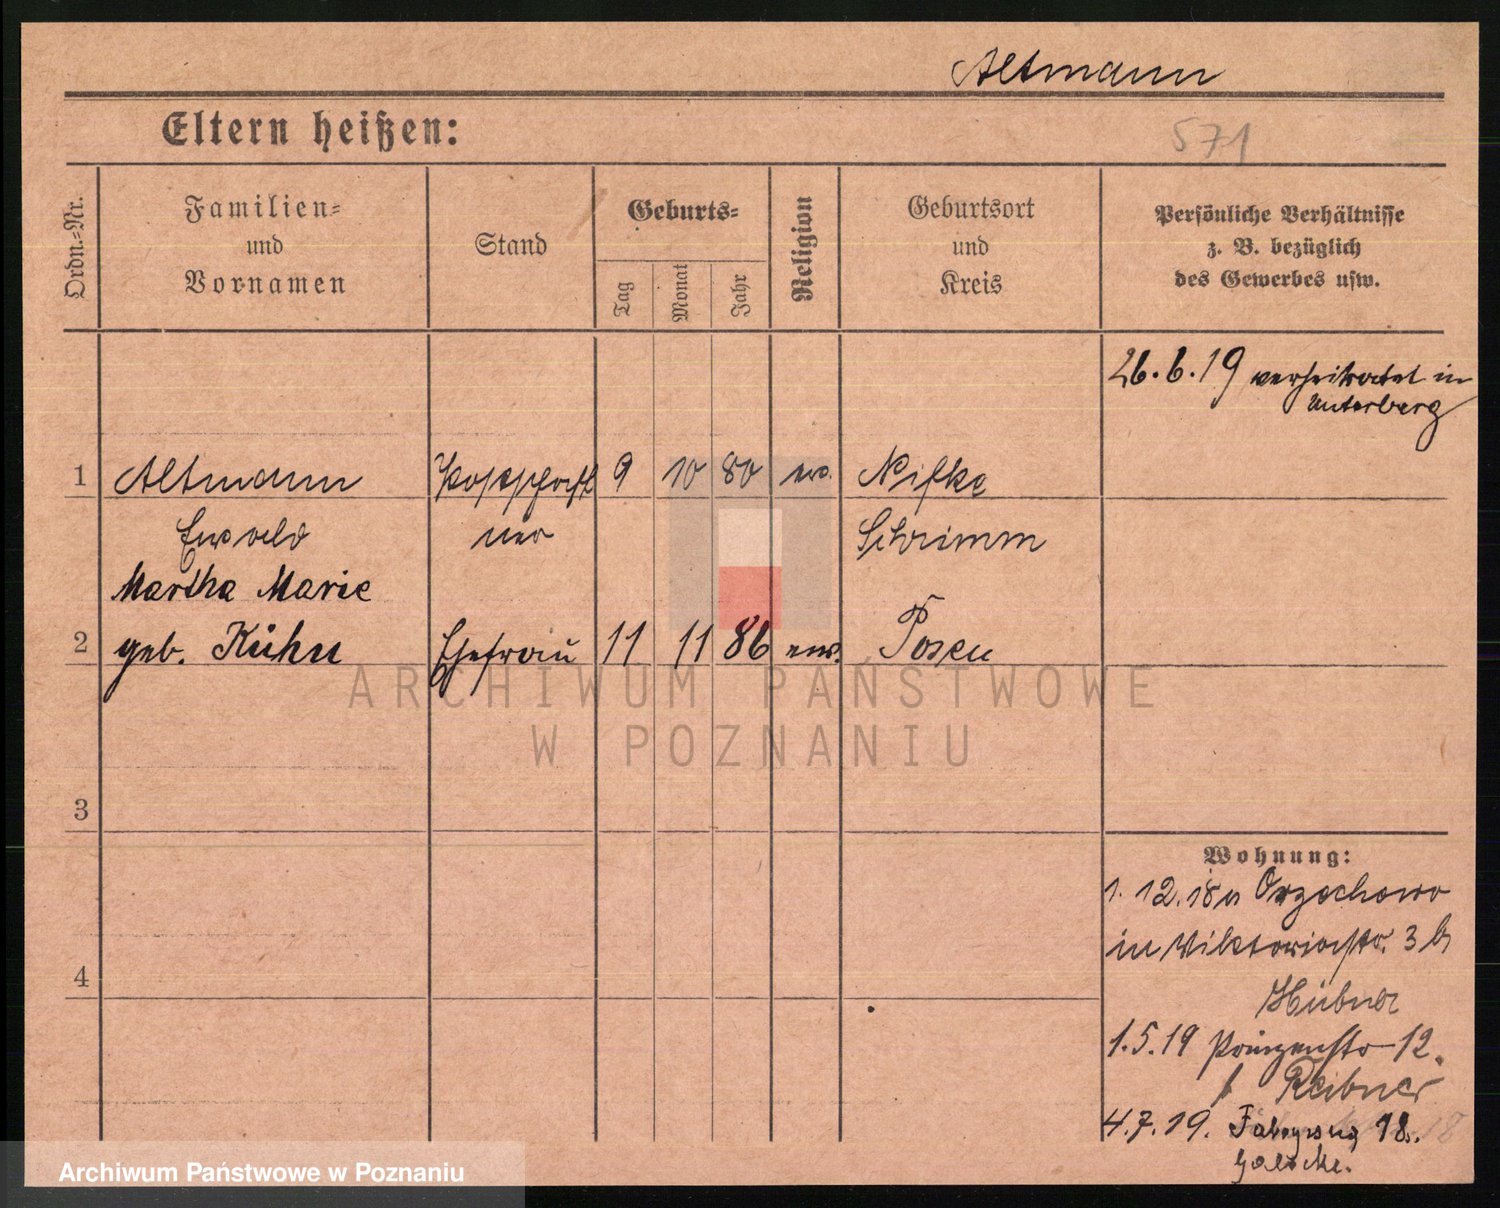 Altmann
Eltern heißen:
571
Ordn.=Nr.
Familien=
und
Vornamen
Stand
Geburts=
Tag
Monat
Jahr
Religion
Geburtsort
und
Kreis
Persönliche Verhältnisse
z. B. bezüglich
des Gewerbes usw.
26.6.19 verheiratet in
Unterberg
1 Altmann 9 10 80 ev.
Ewald ner Schrimm
Martha Marie
2 geb. Kühn Ehefrau 11 11 86 ev. Posen
ARCHIWUM PAŃSTWOWE
W POZNANIU
3
4
Wohnung:
1. 12. 18 Orzechowo
in Viktoriastr. 3b
Hübner
1.5.19 Prinzenstr 12.
b Reibner
4.7.19. 18.
Archiwum Państwowe w Poznaniu